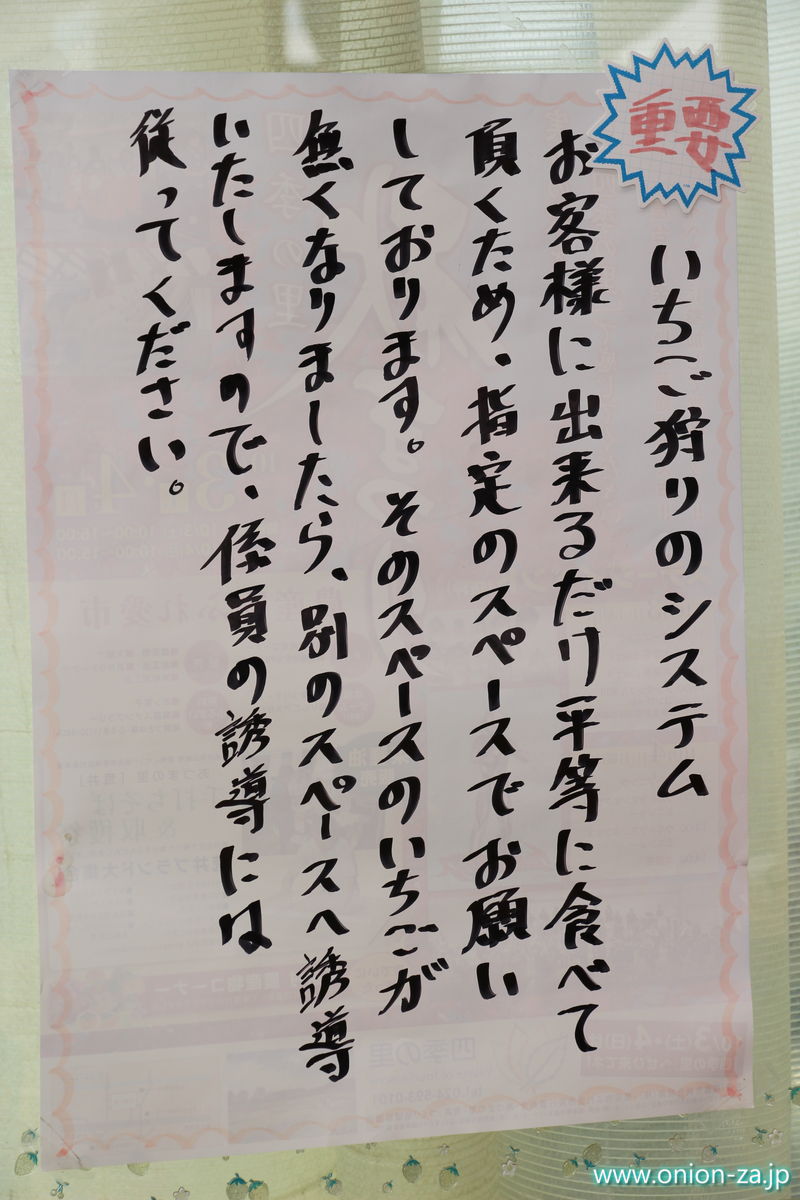 重要
いちご狩りのシステム
お客様に出来るだけ平等に食べて
頂くため、指定のスペースでお願い
しております。そのスペースのいちごが
無くなりましたら、別のスペースへ誘導
いたしますので、係員の誘導には
従ってください。
www.onion-za.jp